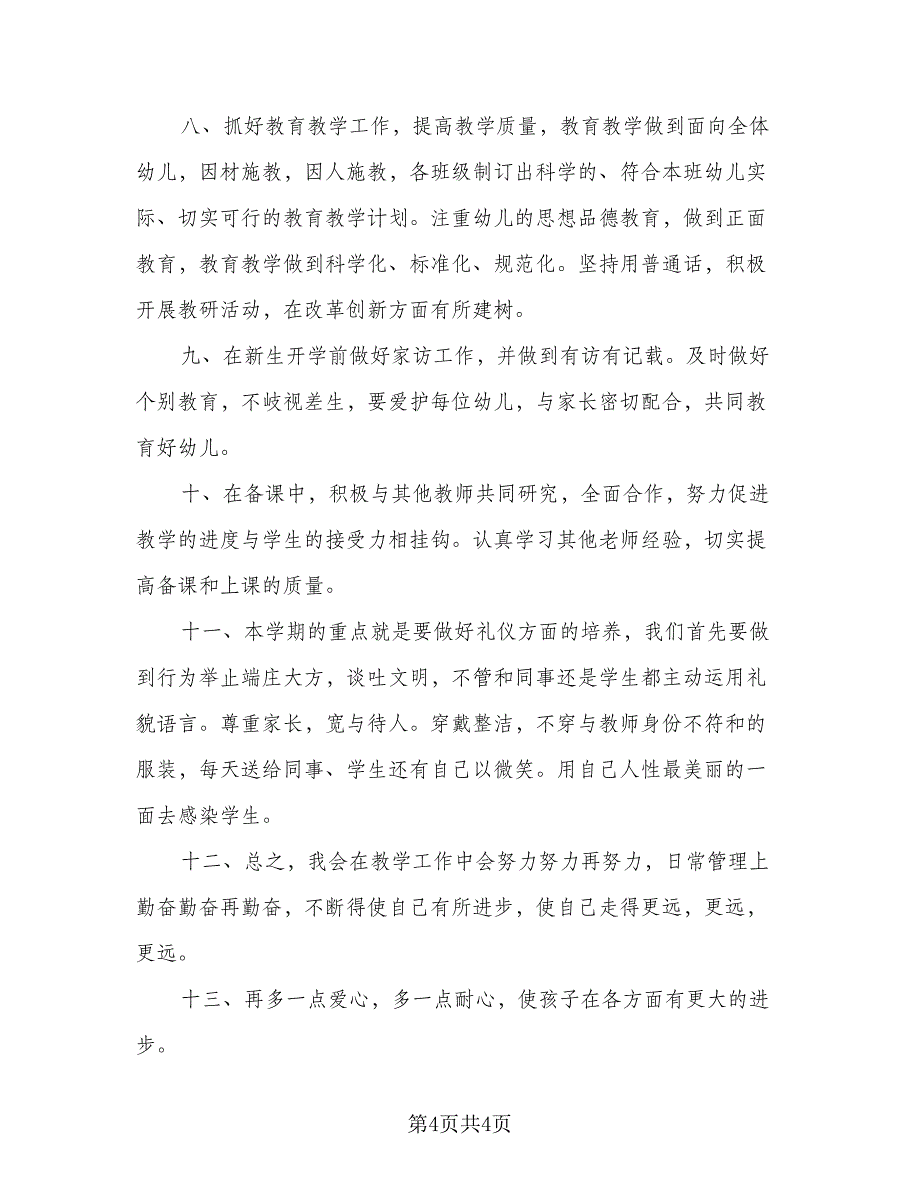 八、抓好教育教学工作，提高教学质量，教育教学做到面向全体
幼儿，因材施教，因人施教，各班级制订出科学的、符合本班幼儿实
际、切实可行的教育教学计划。注重幼儿的思想品德教育，做到正面
教育，教育教学做到科学化、标准化、规范化。坚持用普通话，积极
开展教研活动，在改革创新方面有所建树。
九、在新生开学前做好家访工作，并做到有访有记载。及时做好
个别教育，不歧视差生，要爱护每位幼儿，与家长密切配合，共同教
育好幼儿。
十、在备课中，积极与其他教师共同研究，全面合作，努力促进
教学的进度与学生的接受力相挂钩。认真学习其他老师经验，切实提
高备课和上课的质量。
十一、本学期的重点就是要做好礼仪方面的培养，我们首先要做
到行为举止端庄大方，谈吐文明，不管和同事还是学生都主动运用礼
貌语言。尊重家长，宽与待人。穿戴整洁，不穿与教师身份不符和的
服装，每天送给同事、学生还有自己以微笑。用自己人性最美丽的一
面去感染学生。
十二、总之，我会在教学工作中会努力努力再努力，日常管理上
勤奋勤奋再勤奋，不断得使自己有所进步，使自己走得更远，更远，
更远。
十三、再多一点爱心，多一点耐心，使孩子在各方面有更大的进
步。
第4页共4页